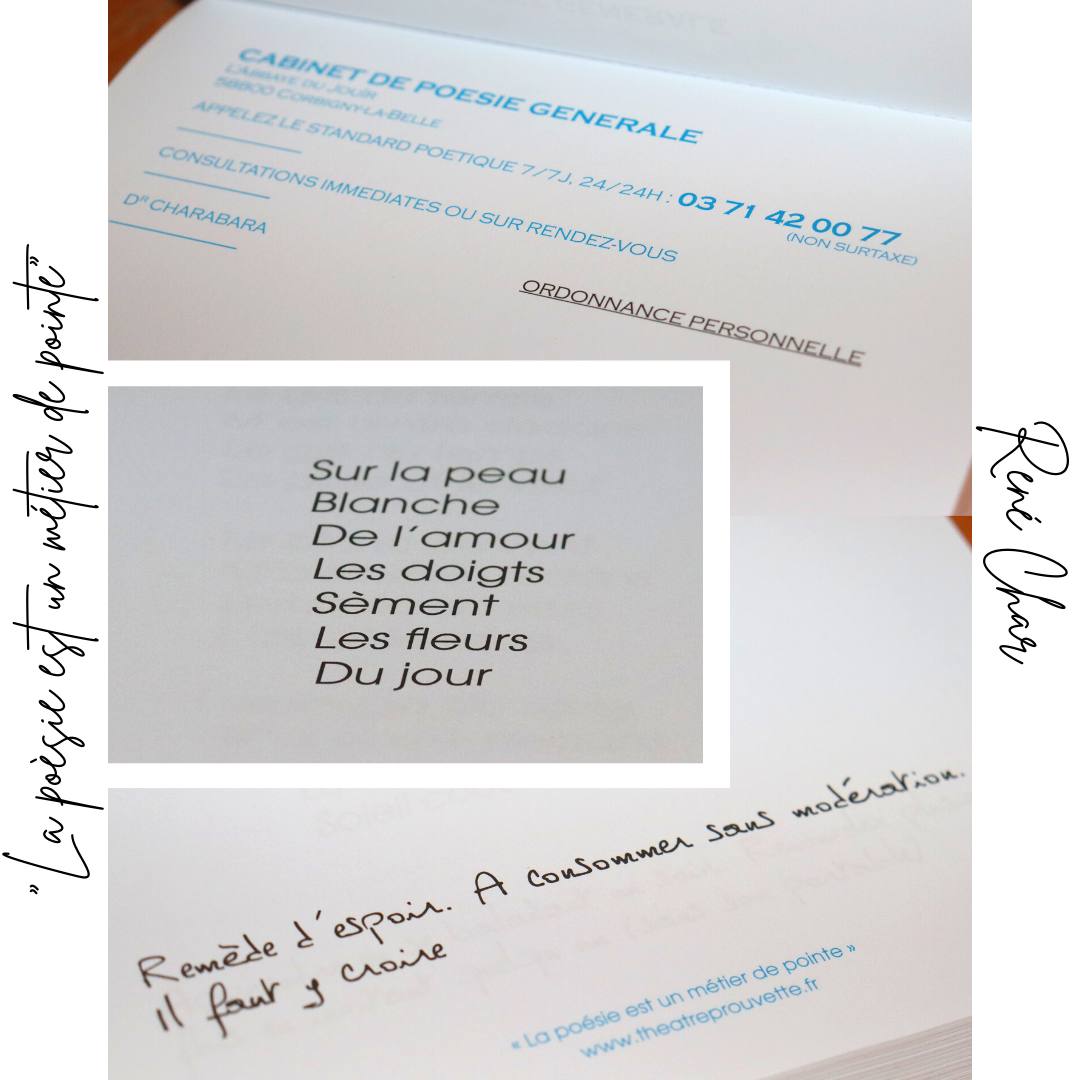 CABINET DE POESIE GENERALE
L'ABBAYE DU JOUÏR
58800 CORBIGNY-LA-BELLE
APPELEZ LE STANDARD POETIQUE 7/7J, 24/24H : 03 71 42 00 77
(NON SURTAXE)
CONSULTATIONS IMMEDIATES OU SUR RENDEZ-VOUS
DR CHARABARA
ORDONNANCE PERSONNELLE
Sur la peau
Blanche
De l'amour
Les doigts
Sèment
Les fleurs
Du jour
Remède d'espoir. A consommer sans modération.
Il faut y croire
« La poésie est un métier de pointe »
www.theatreprouvette.fr
"La poèsie est un métier de pointe"
René Char